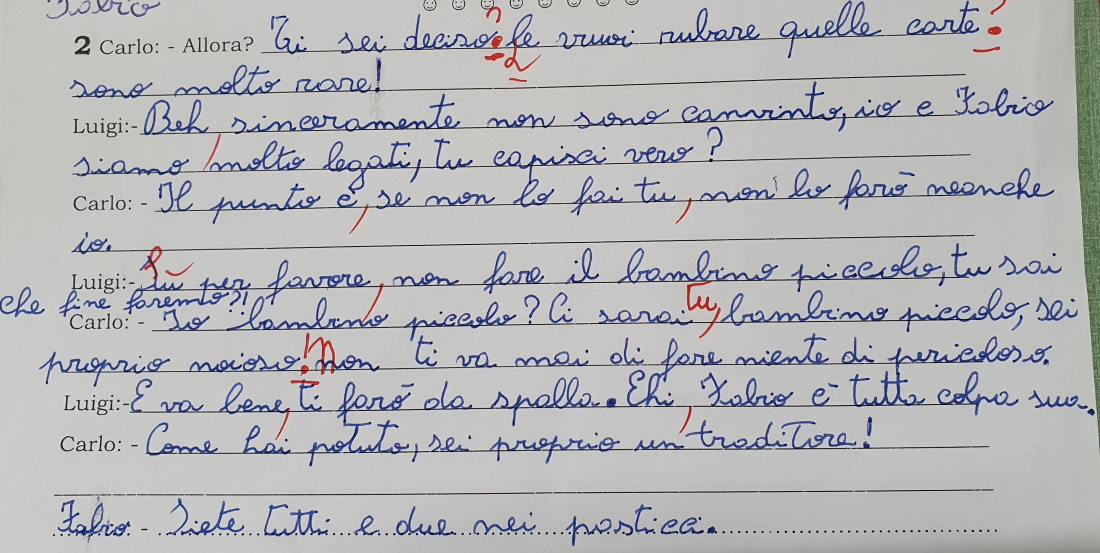 Fabio
2 Carlo: - Allora? Ti sei deciso? Le vuoi rubare quelle carte?
sono molto rare!
Luigi:- Beh, sinceramente non sono canvinto, io e Fabio
siamo molto legati, tu capisci vero?
Carlo: - Il punto è, se non lo fai tu, non lo farò neanche
io.
Luigi:- Sù per favore, non fare il bambino piccolo, tu sai
che fine faremo?!
Carlo: - Io bambino piccolo? Ci sarai tu, bambino piccolo, sei
proprio noioso! Non ti va mai di fare niente di pericoloso.
Luigi:- E va bene, ti farò da spalla. Ehi, Fabio è tutta colpa sua.
Carlo: - Come hai potuto, sei proprio un traditore!
Fabio - Siete tutti e due nei pasticci.